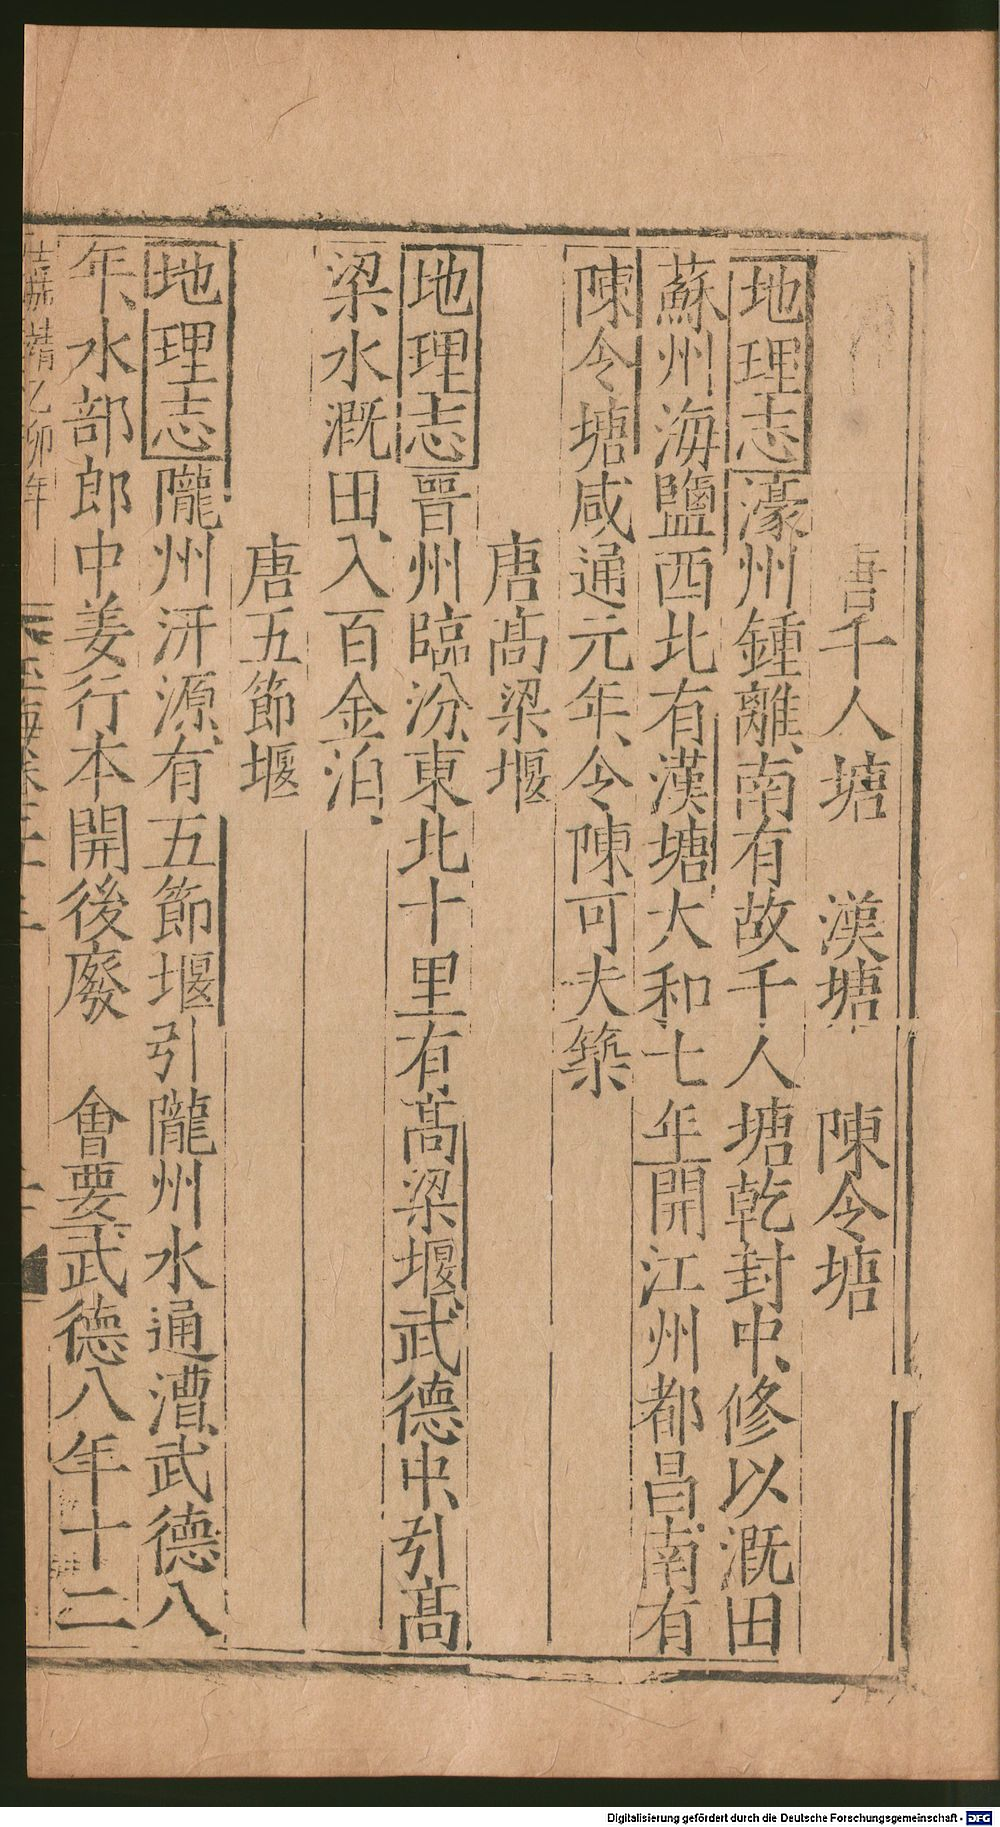 唐千人塘　漢塘　陳令塘
地理志濠州鍾離、南有故千人塘乾封中、修以漑田
蘇州海鹽西北有漢塘大和七年開江州都昌南有
陳令塘咸通元年、令陳可夫築
唐高梁堰
地理志晉州臨汾、東北十里有高梁堰、武德中、引高
梁水漑田、入百金泊、
唐五節堰
地理志隴州汧源、有五節堰引隴州水通漕、武德八
年、水部郎中姜行本開後廢　會要武德八年十二
Digitalisierung gefördert durch die Deutsche Forschungsgemeinschaft - DFG